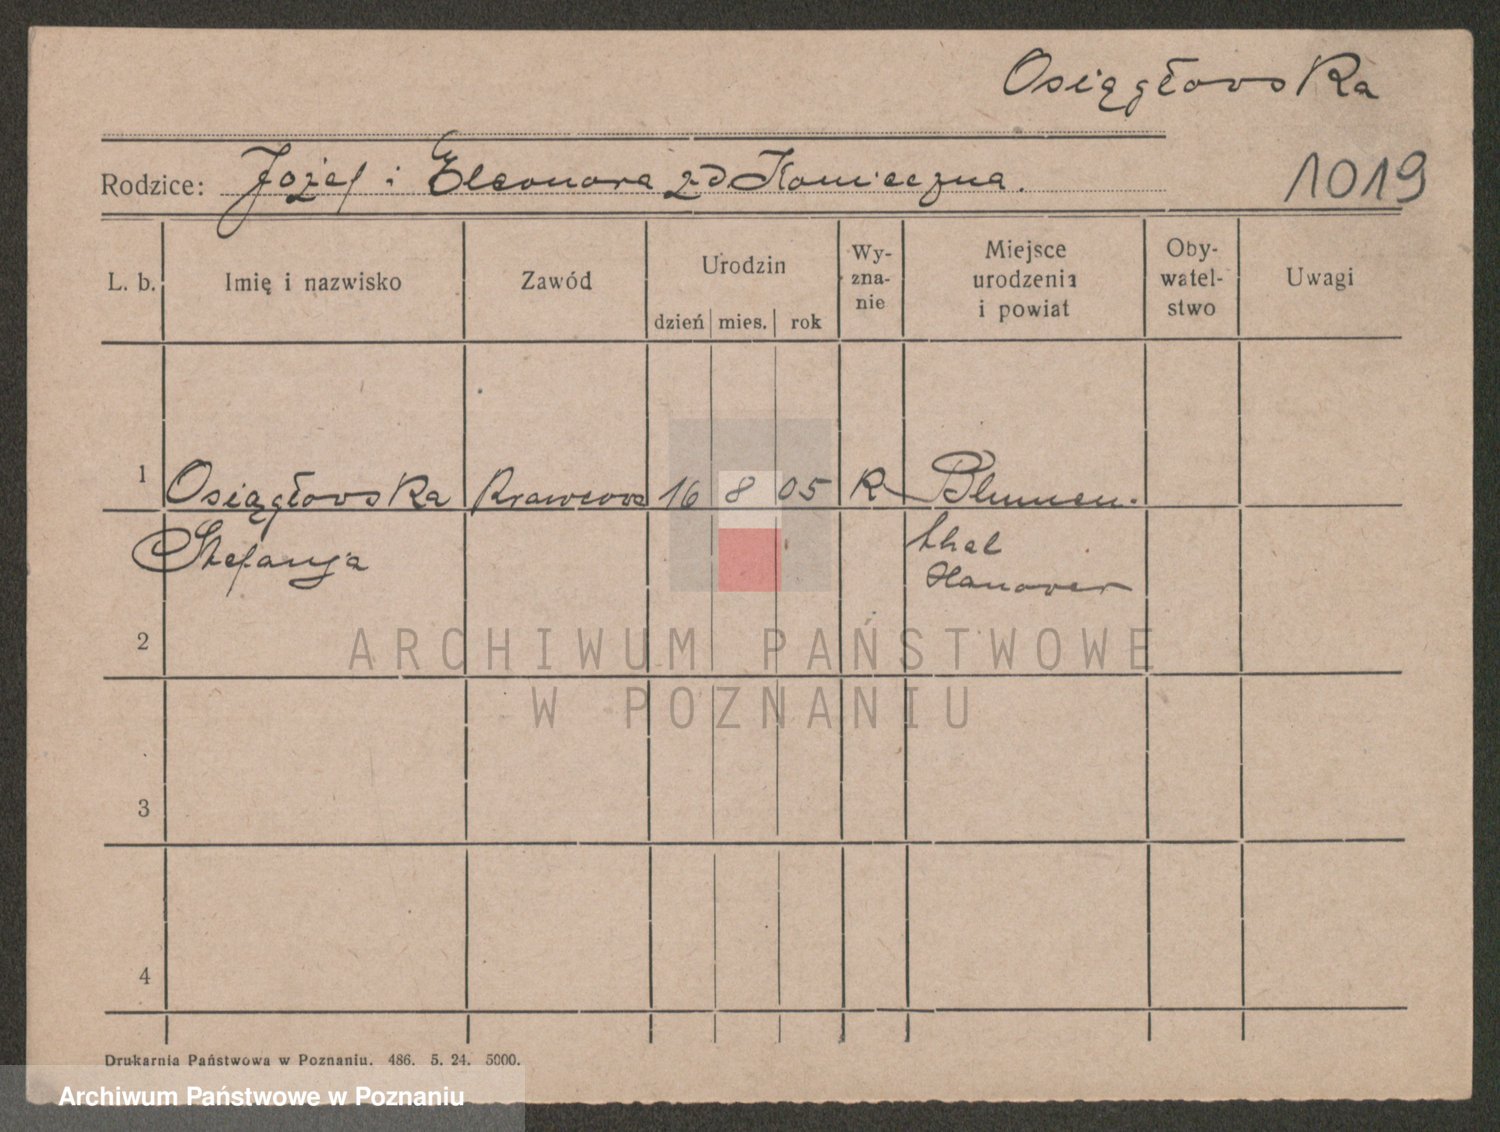 Osiągłowska
Rodzice: Józef i Eleonora zd Konieczna.
1019
L. b. Imię i nazwisko Zawód Urodzin dzień mies. rok Wy-zna-nie Miejsce urodzenia i powiat Oby-watel-stwo Uwagi
1 Osiągłowska Krawcowa 16 8 05 R Blumen-
Stefanja thal
Hanower
2
ARCHIWUM PAŃSTWOWE
W POZNANIU
3
4
Drukarnia Państwowa w Poznaniu. 486. 5. 24. 5000.
Archiwum Państwowe w Poznaniu